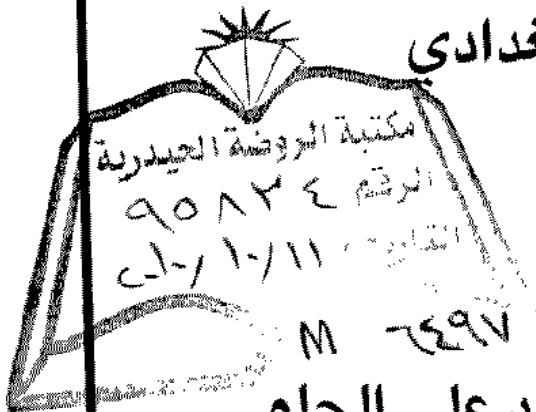 غدادي
مكتبة الروضة الحيدرية
الرقم ٩٥٨٣٤
التاريخ ٢٠١٠/١٠/١١
M ٦٤٩٧